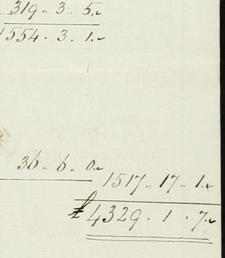 319. 3. 5.
1554. 3. 1.
36. 6. 0.
1517. 17. 1.
£4329. 1. 7.